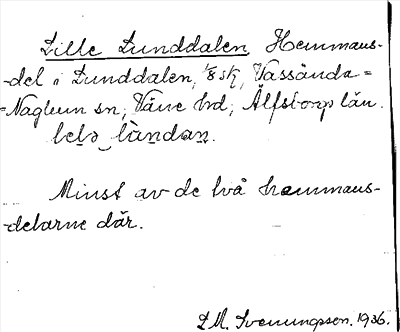 Lille Lunddalen Hemmans-
-del i Lunddalen, 1/8 skf, Vassända=
=Naglum sn, Väne hd, Älfsborgs län.
Minst av de två hemmans-
-delarne där.
L.M. Svenungsson. 1936.